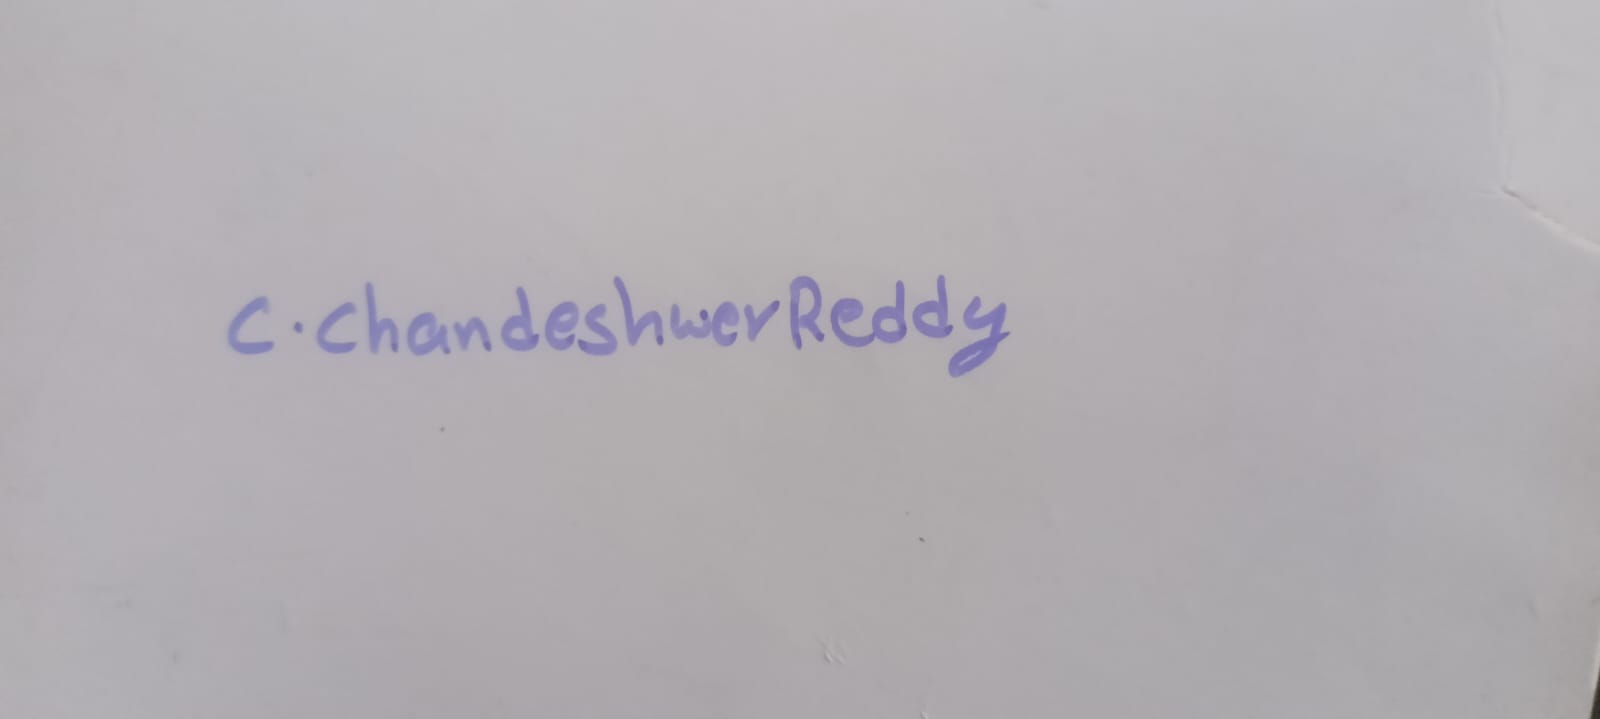 C. Chandeshwer Reddy